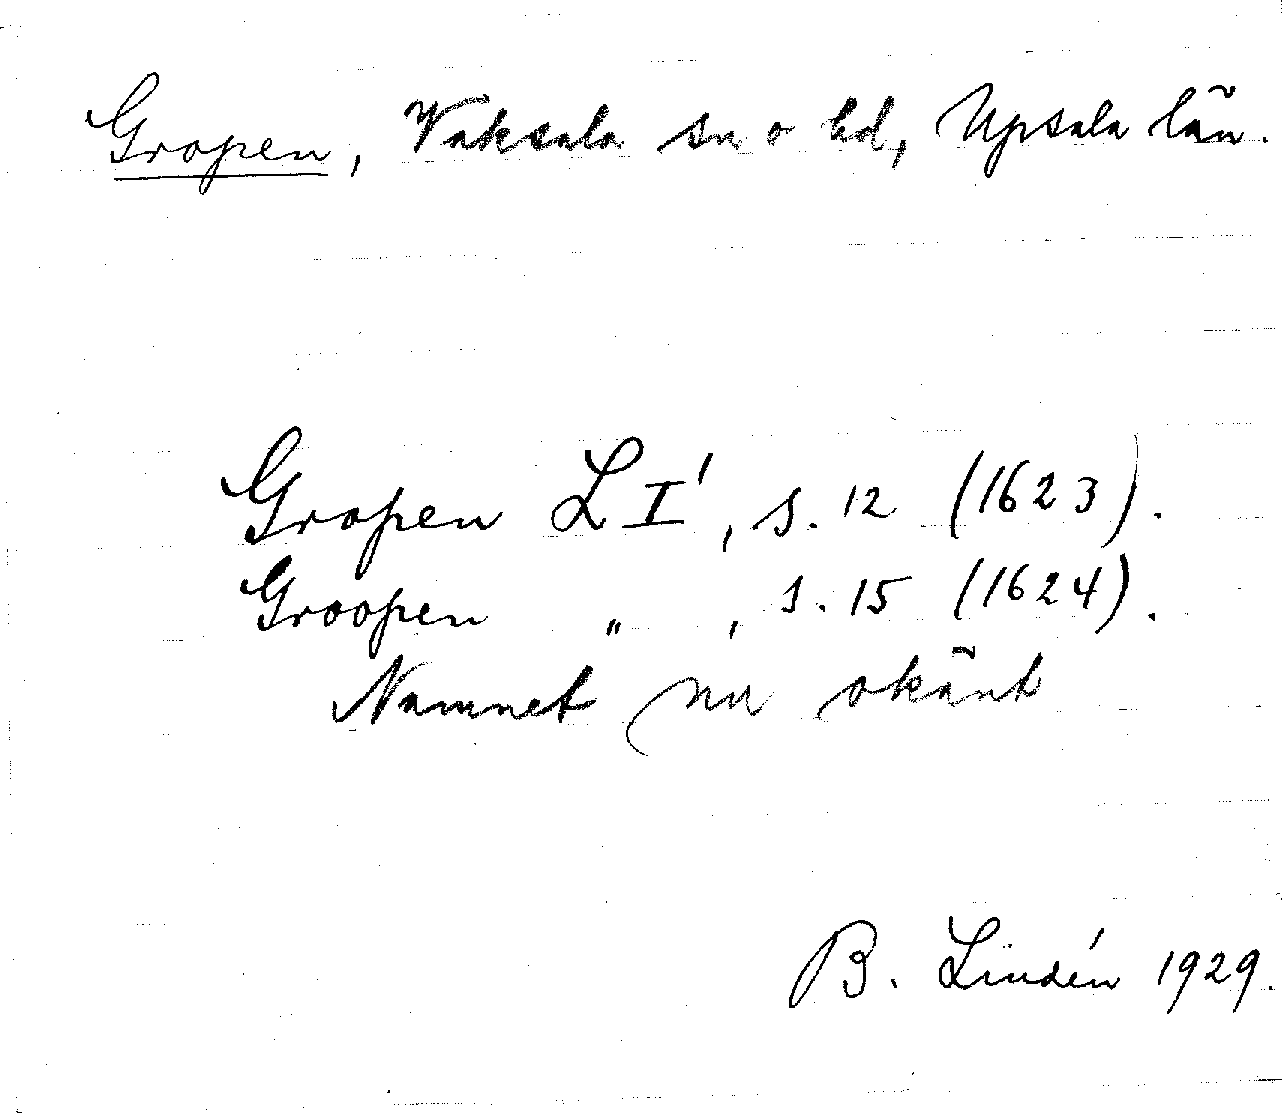 Gropen, Vaksala sn o hd, Upsala län.
Gropen L I', s. 12 (1623).
Groopen „ , s. 15 (1624).
Namnet nu okänt
B. Lindén 1929.